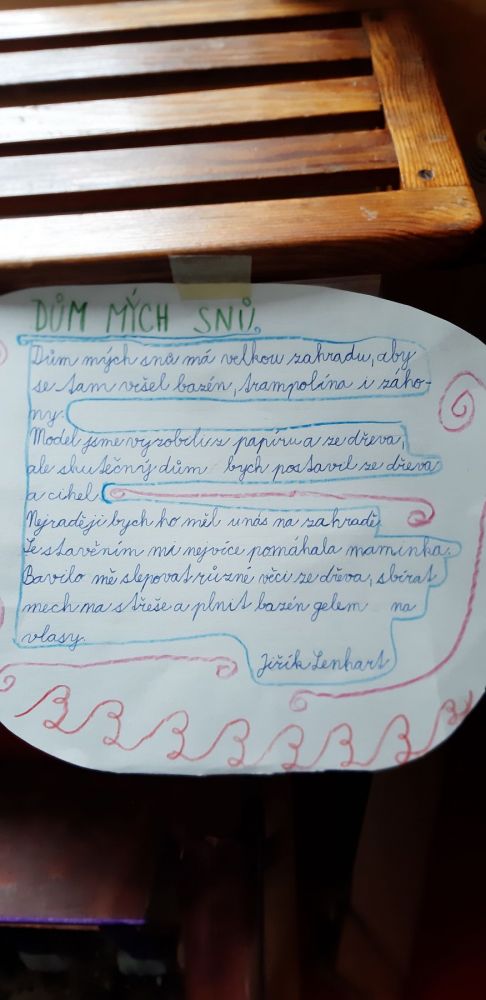 DŮM MÝCH SNŮ.
Dům mých snů má velkou zahradu, aby
se tam vešel bazén, trampolína i záho-
ny.
Model jsme vyrobili z papíru a ze dřeva,
ale skutečný dům bych postavil ze dřeva
a cihel.
Nejraději bych ho měl u nás na zahradě.
Se stavěním mi nejvíce pomáhala maminka.
Bavilo mě slepovat různé věci ze dřeva, sbírat
mech na střeše a plnit bazén gelem na
vlasy.
Jiřík Lenhart